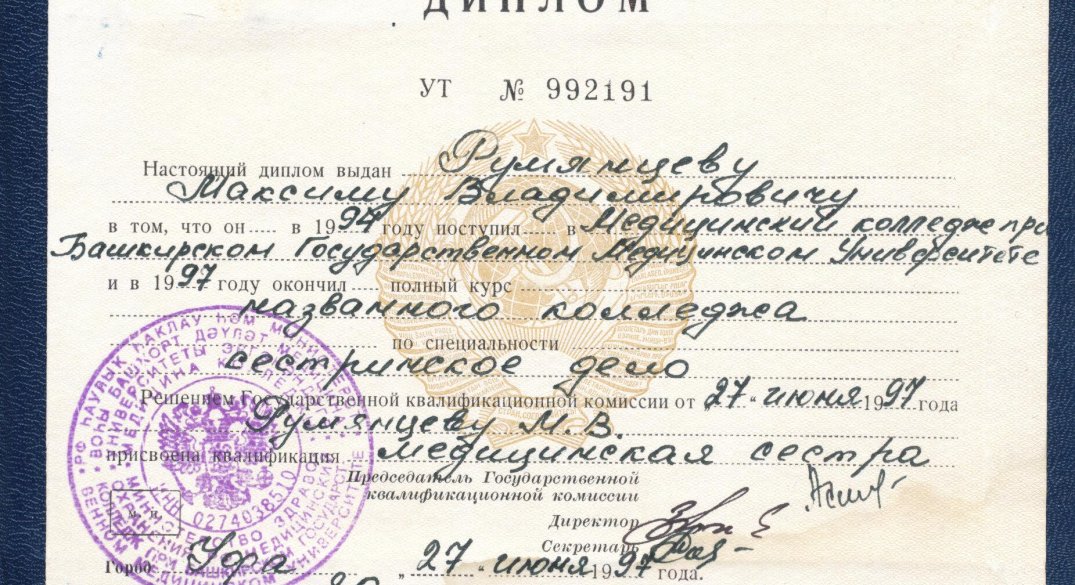 ДИПЛОМ
УТ № 992191
Настоящий диплом выдан Румянцеву
Максиму Владимировичу
в том, что он в 1994 году поступил в Медицинский колледж при
Башкирском Государственном Медицинском Университете
и в 1997 году окончил полный курс
названного колледжа
по специальности
сестринское дело
Решением Государственной квалификационной комиссии от „27“ июня 1997 года
Румянцеву М. В.
присвоена квалификация медицинская сестра
Председатель Государственной
квалификационной комиссии
Директор
Секретарь
М. П.
Город Уфа „27“ июня 1997 года.